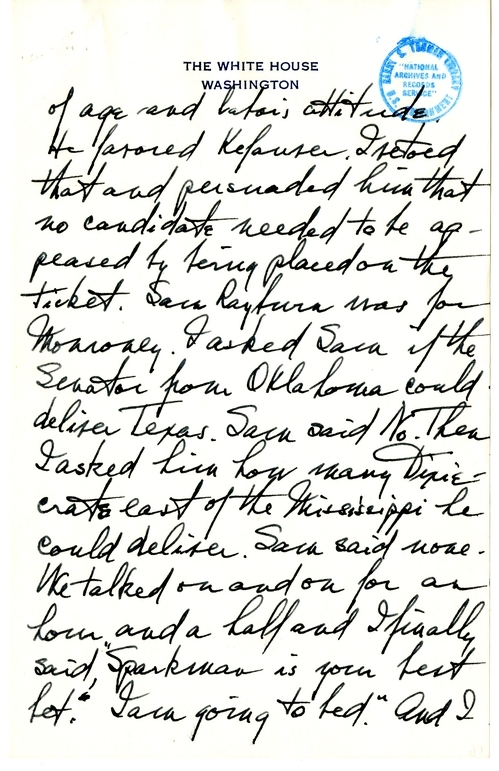 THE WHITE HOUSE
WASHINGTON
HARRY S. TRUMAN LIBRARY
"NATIONAL
ARCHIVES AND
RECORDS
SERVICE"
of age and labor's attitude.
He favored Kefauver. I vetoed
that and persuaded him that
no candidate needed to be ap-
peased by being placed on the
ticket. Sam Rayburn was for
Monroney. I asked Sam if the
Senator from Oklahoma could
deliver Texas. Sam said No. Then
I asked him how many Dixie-
crats east of the Mississippi he
could deliver. Sam said none.
We talked on and on for an
hour and a half and I finally
said, "Sparkman is your best
bet." "I am going to bed." And I